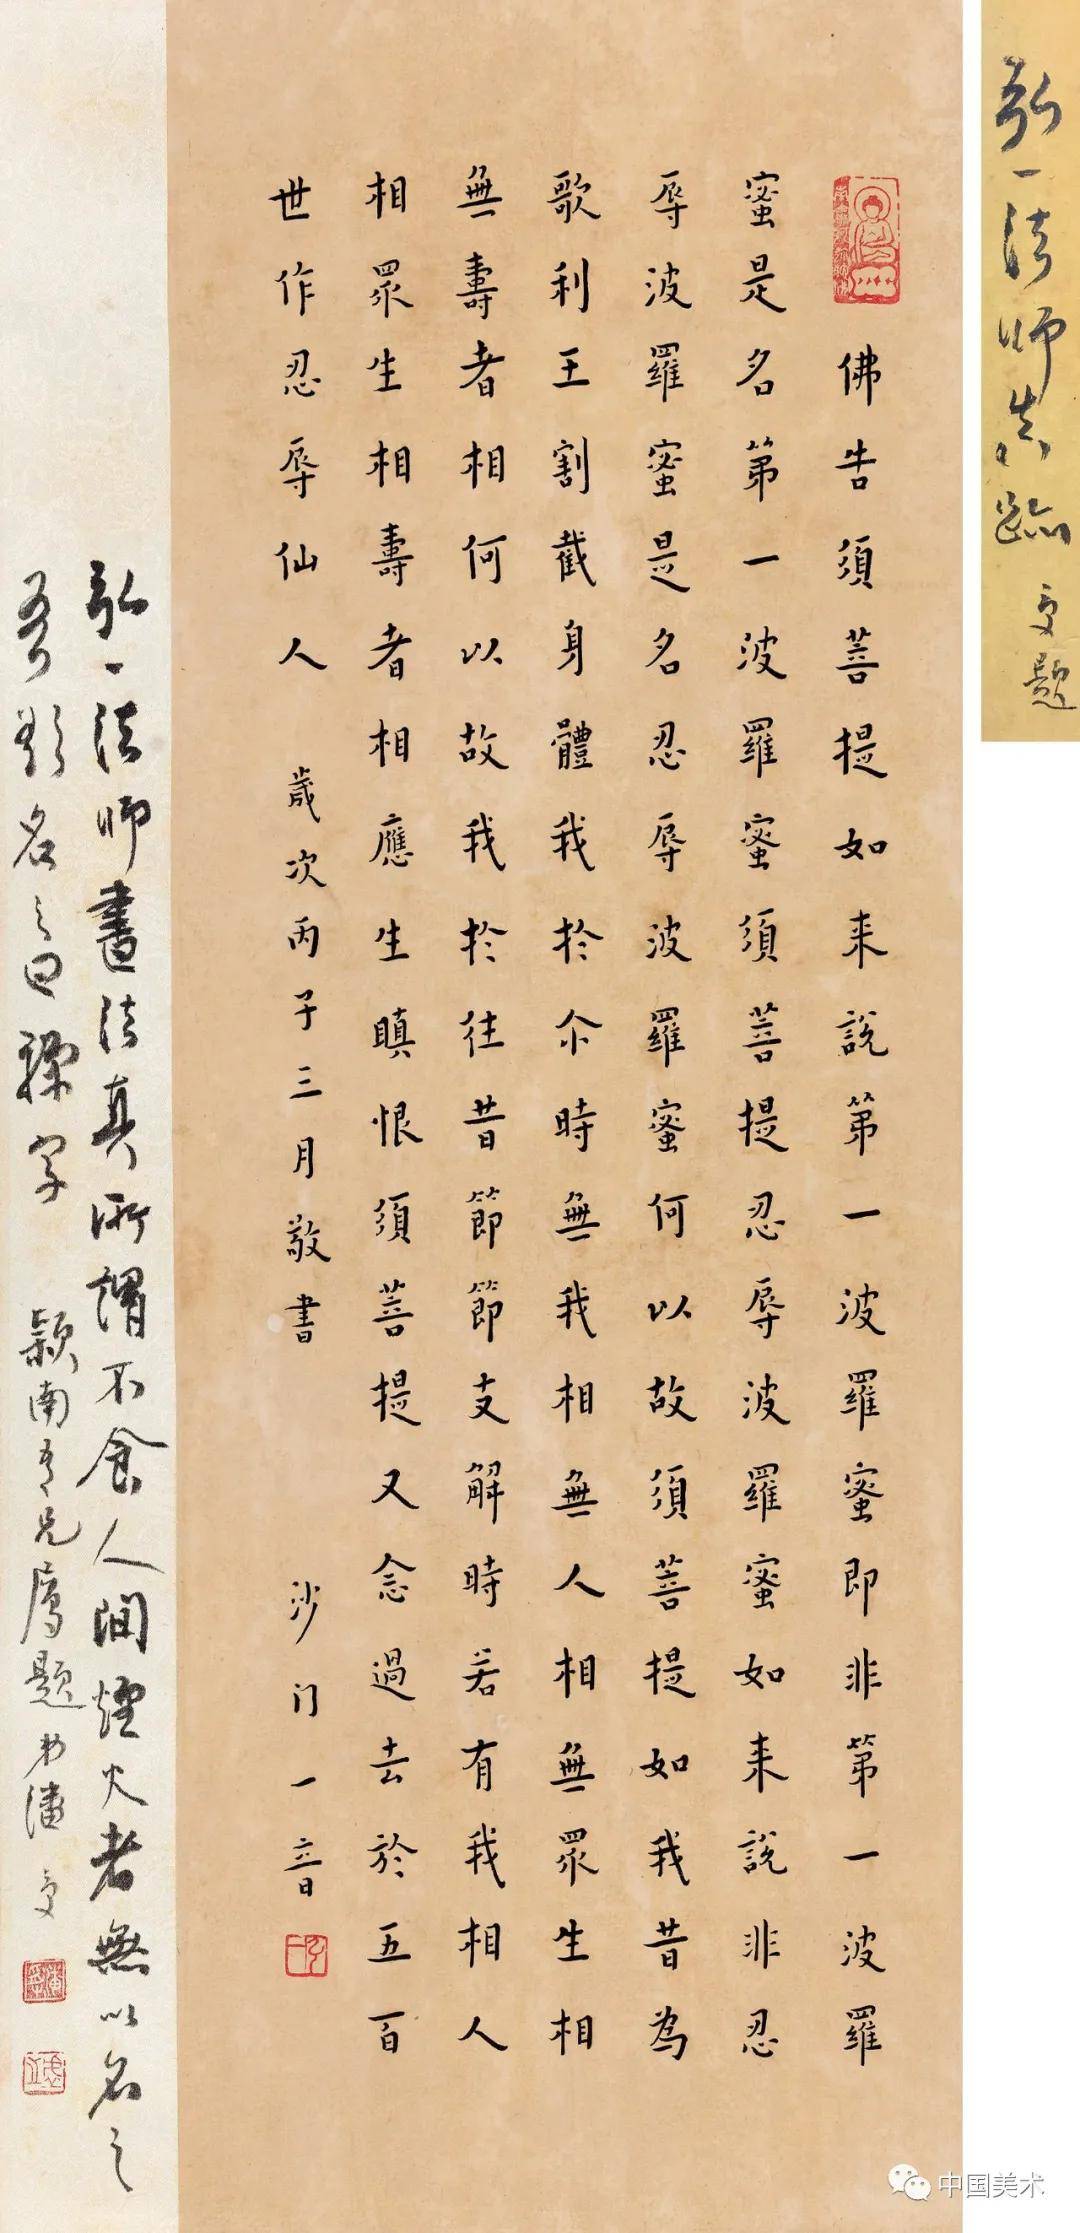 弘一法師真跡 受題
佛告須菩提如来說第一波羅蜜即非第一波羅
蜜是名第一波羅蜜須菩提忍辱波羅蜜如来說非忍
辱波羅蜜是名忍辱波羅蜜何以故須菩提如我昔為
歌利王割截身體我於尒時無我相無人相無眾生相
無壽者相何以故我於往昔節節支解時若有我相人
相眾生相壽者相應生瞋恨須菩提又念過去於五百
世作忍辱仙人 歲次丙子三月敬書 沙门一音
弘一
弘一法師書法真所謂不食人間煙火者無以名之
吾欲名之曰字 穎南兄屬題 弟潘受
中国美术